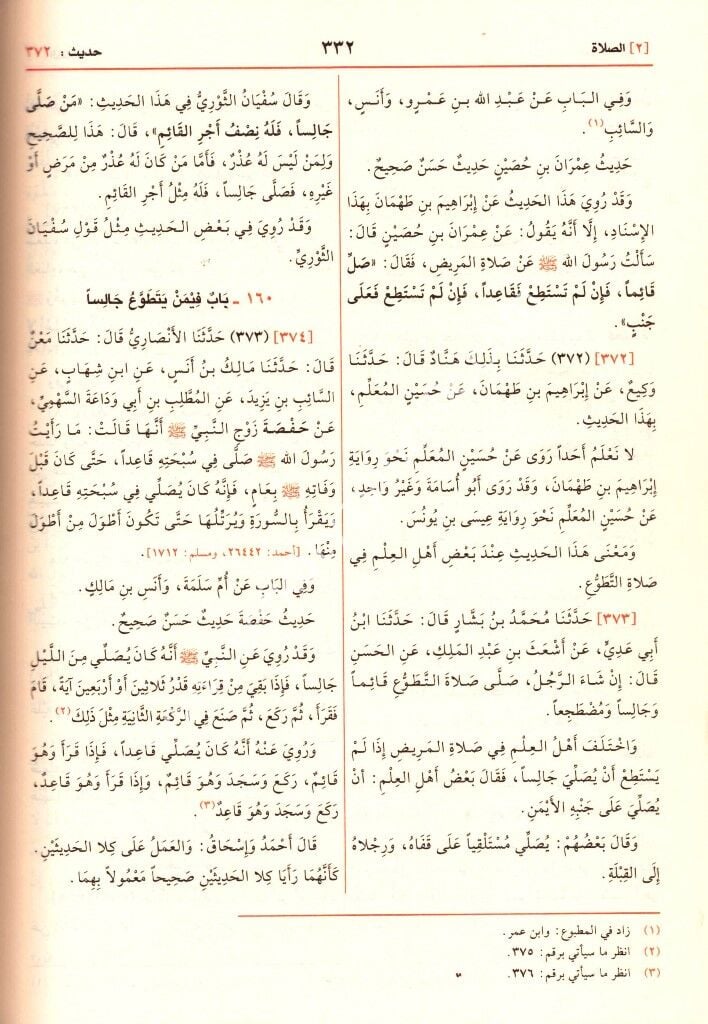 [٢] الصلاة
٣٣٢
حديث : ٣٧٢
وَفِي البَابِ عَنْ عَبْدِ الله بنِ عَمْرٍو، وَأَنَسٍ،
وَالسَّائِبِ(١).
حَدِيثُ عِمْرَانَ بنِ حُصَيْنٍ حَدِيثٌ حَسَنٌ صَحِيحٌ.
وَقَدْ رُوِيَ هَذَا الحَدِيثُ عَنْ إِبْرَاهِيمَ بنِ طَهْمَانَ بِهَذَا
الإِسْنَادِ، إِلَّا أَنَّهُ يَقُولُ: عَنْ عِمْرَانَ بنِ حُصَيْنٍ قَالَ:
سَأَلْتُ رَسُولَ الله ﷺ عَنْ صَلاةِ المَرِيضِ، فَقَالَ: «صَلِّ
قَائِماً، فَإِنْ لَمْ تَسْتَطِعْ فَقَاعِداً، فَإِنْ لَمْ تَسْتَطِعْ فَعَلَى
جَنْبٍ».
[٣٧٢] (٣٧٢) حَدَّثَنَا بِذَلِكَ هَنَّادٌ قَالَ: حَدَّثَنَا
وَكِيعٌ، عَنْ إِبْرَاهِيمَ بنِ طَهْمَانَ، عَنْ حُسَيْنٍ المُعَلِّمِ،
بِهَذَا الحَدِيثِ.
لا نَعْلَمُ أَحَداً رَوَى عَنْ حُسَيْنٍ المُعَلِّمِ نَحْوَ رِوَايَةِ
إِبْرَاهِيمَ بنِ طَهْمَانَ، وَقَدْ رَوَى أَبُو أُسَامَةَ وَغَيْرُ وَاحِدٍ،
عَنْ حُسَيْنٍ المُعَلِّمِ نَحْوَ رِوَايَةِ عِيسَى بنِ يُونُسَ.
وَمَعْنَى هَذَا الحَدِيثِ عِنْدَ بَعْضِ أَهْلِ العِلْمِ فِي
صَلاةِ التَّطَوُّعِ.
[٣٧٣] حَدَّثَنَا مُحَمَّدُ بنُ بَشَّارٍ قَالَ: حَدَّثَنَا ابْنُ
أَبِي عَدِيٍّ، عَنْ أَشْعَثَ بنِ عَبْدِ المَلِكِ، عَنِ الحَسَنِ
قَالَ: إِنْ شَاءَ الرَّجُلُ، صَلَّى صَلاةَ التَّطَوُّعِ قَائِماً
وَجَالِساً وَمُضْطَجِعاً.
وَاخْتَلَفَ أَهْلُ العِلْمِ فِي صَلاةِ المَرِيضِ إِذَا لَمْ
يَسْتَطِعْ أَنْ يُصَلِّيَ جَالِساً، فَقَالَ بَعْضُ أَهْلِ العِلْمِ: أَنْ
يُصَلِّيَ عَلَى جَنْبِهِ الأَيْمَنِ.
وَقَالَ بَعْضُهُمْ: يُصَلِّي مُسْتَلْقِياً عَلَى قَفَاهُ، وَرِجْلاهُ
إِلَى القِبْلَةِ.
وَقَالَ سُفْيَانُ الثَّوْرِيُّ فِي هَذَا الحَدِيثِ: «مَنْ صَلَّى
جَالِساً، فَلَهُ نِصْفُ أَجْرِ القَائِمِ»، قَالَ: هَذَا لِلصَّحِيحِ
وَلِمَنْ لَيْسَ لَهُ عُذْرٌ، فَأَمَّا مَنْ كَانَ لَهُ عُذْرٌ مِنْ مَرَضٍ أَوْ
غَيْرِهِ، فَصَلَّى جَالِساً، فَلَهُ مِثْلُ أَجْرِ القَائِمِ.
وَقَدْ رُوِيَ فِي بَعْضِ الحَدِيثِ مِثْلُ قَوْلِ سُفْيَانَ
الثَّوْرِيِّ.
١٦٠ ـ بَابٌ فِيْمَنْ يَتَطَوَّعُ جَالِساً
[٣٧٤] (٣٧٣) حَدَّثَنَا الأَنْصَارِيُّ قَالَ: حَدَّثَنَا مَعْنٌ
قَالَ: حَدَّثَنَا مَالِكُ بنُ أَنَسٍ، عَنِ ابنِ شِهَابٍ، عَنِ
السَّائِبِ بنِ يَزِيدَ، عَنِ المُطَّلِبِ بنِ أَبِي وَدَاعَةَ السَّهْمِيِّ،
عَنْ حَفْصَةَ زَوْجِ النَّبِيِّ ﷺ أَنَّهَا قَالَتْ: مَا رَأَيْتُ
رَسُولَ الله ﷺ صَلَّى فِي سُبْحَتِهِ قَاعِداً، حَتَّى كَانَ قَبْلَ
وَفَاتِهِ ﷺ بِعَامٍ، فَإِنَّهُ كَانَ يُصَلِّي فِي سُبْحَتِهِ قَاعِداً،
وَيَقْرَأُ بِالسُّورَةِ وَيُرَتِّلُهَا حَتَّى تَكُونَ أَطْوَلَ مِنْ أَطْوَلَ
مِنْهَا. [أحمد: ٢٦٤٤٢، ومسلم: ١٧١٢].
وَفِي البَابِ عَنْ أُمِّ سَلَمَةَ، وَأَنَسِ بنِ مَالِكٍ.
حَدِيثُ حَفْصَةَ حَدِيثٌ حَسَنٌ صَحِيحٌ.
وَقَدْ رُوِيَ عَنِ النَّبِيِّ ﷺ أَنَّهُ كَانَ يُصَلِّي مِنَ اللَّيْلِ
جَالِساً، فَإِذَا بَقِيَ مِنْ قِرَاءَتِهِ قَدْرُ ثَلاثِينَ أَوْ أَرْبَعِينَ آيَةً، قَامَ
فَقَرَأَ، ثُمَّ رَكَعَ، ثُمَّ صَنَعَ فِي الرَّكْعَةِ الثَّانِيَةِ مِثْلَ ذَلِكَ(٢).
وَرُوِيَ عَنْهُ أَنَّهُ كَانَ يُصَلِّي قَاعِداً، فَإِذَا قَرَأَ وَهُوَ
قَائِمٌ، رَكَعَ وَسَجَدَ وَهُوَ قَائِمٌ، وَإِذَا قَرَأَ وَهُوَ قَاعِدٌ،
رَكَعَ وَسَجَدَ وَهُوَ قَاعِدٌ(٣).
قَالَ أَحْمَدُ وَإِسْحَاقُ: وَالعَمَلُ عَلَى كِلا الحَدِيثَيْنِ.
كَأَنَّهُمَا رَأَيَا كِلا الحَدِيثَيْنِ صَحِيحاً مَعْمُولاً بِهِمَا.
(١) زاد في المطبوع: وابن عمر.
(٢) انظر ما سيأتي برقم: ٣٧٥.
(٣) انظر ما سيأتي برقم: ٣٧٦.